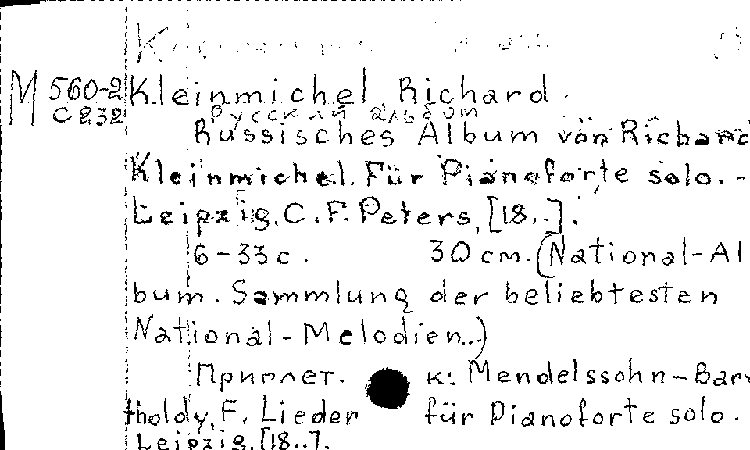 M 560-2 Kleinmichel Richard.
С 232 Русский альбом
Russisches Album von Richard
Kleinmichel. Für Pianoforte solo. -
Leipzig, C. F. Peters, [18..].
6-33 с. 30 см. (National-Al
bum. Sammlung der beliebtesten
National-Melodien..)
Приплет. к: Mendelssohn-Bar
tholdy, F. Lieder für Pianoforte solo.
Leipzig, [18..].